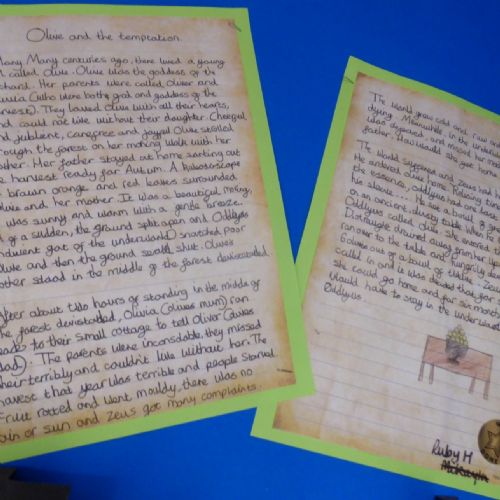 Olive and the temptation.
Many Many centuries ago, there lived a young
called Olive. Olive was the goddess of the
Her parents were called Oliver and
Olivia (who were both a god and goddess of the
harvest). They loved Olive with all their hearts,
and could not live without their daughter. Cheerful
and jubilent, carefree and joyful Olive strolled
through the forest on her morning walk with her
mother. Her father stayed at home sorting out
the harvest ready for Autum. A kaleidoscope
of brown orange and red leaves surrounded
Olive and her mother. It was a beautiful morning,
was sunny and warm with a gentle breeze.
of a sudden, the ground split open and Oddyus
of the underworld) snatched poor
Olive and then the ground sealed shut. Olives
mother stood in the middle of the forest devistated.
After about two hours of standing in the middle of
the forest devistated, Olivia (olives mum) ran
back to their small cottage to tell Oliver (olives
dad). The parents were inconsolable, they missed
their terribly and couldn't live without her. The
harvest that year was terrible and people starved.
Fruit rotted and went mouldy, there was no
rain or sun and Zeus got many complaints.
The world grew cold and
dying. Meanwhile in the
was depressed and missed her
father. How would she get home
The world suffered and Zeus had
He entered olives home. Raising
the essence, oddyus had one
his sleeve... He
on an ancient, dusty table when
Oddyus called olive. She entered the
Distraught drained away from her
ran over to the table and hungrily
6 olives out of a bowl of twelve. Zeus
called in and it was decided that for
she could go home and for six months
Would have to stay in the underworld
Oddyus.
Ruby M